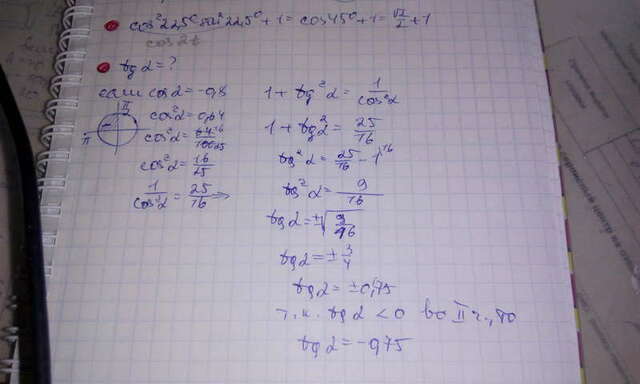 cos²22,5° - sin²22,5° + 1 = cos45° + 1 = √2/2 + 1
cos2t
tgα = ?
если cosα = -0,8
cos²α = 0,64
cos²α = 64/100 16/25
cos²α = 16/25
1/cos²α = 25/16 ⇒
π/2
π
1 + tg²α = 1/cos²α
1 + tg²α = 25/16
tg²α = 25/16 - 1
tg²α = 9/16
tgα = ±√9/16
tgα = ± 3/4
tgα = ±0,75
т.к. tgα < 0 во II ч., то
tgα = -0,75